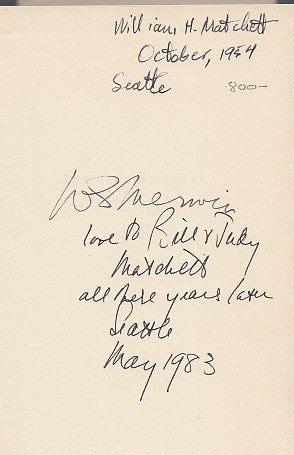 William H. Matchett
October, 1954
Seattle 800-
WS Merwin
love to Bill & Judy
Matchett
all these years later
Seattle
May 1983